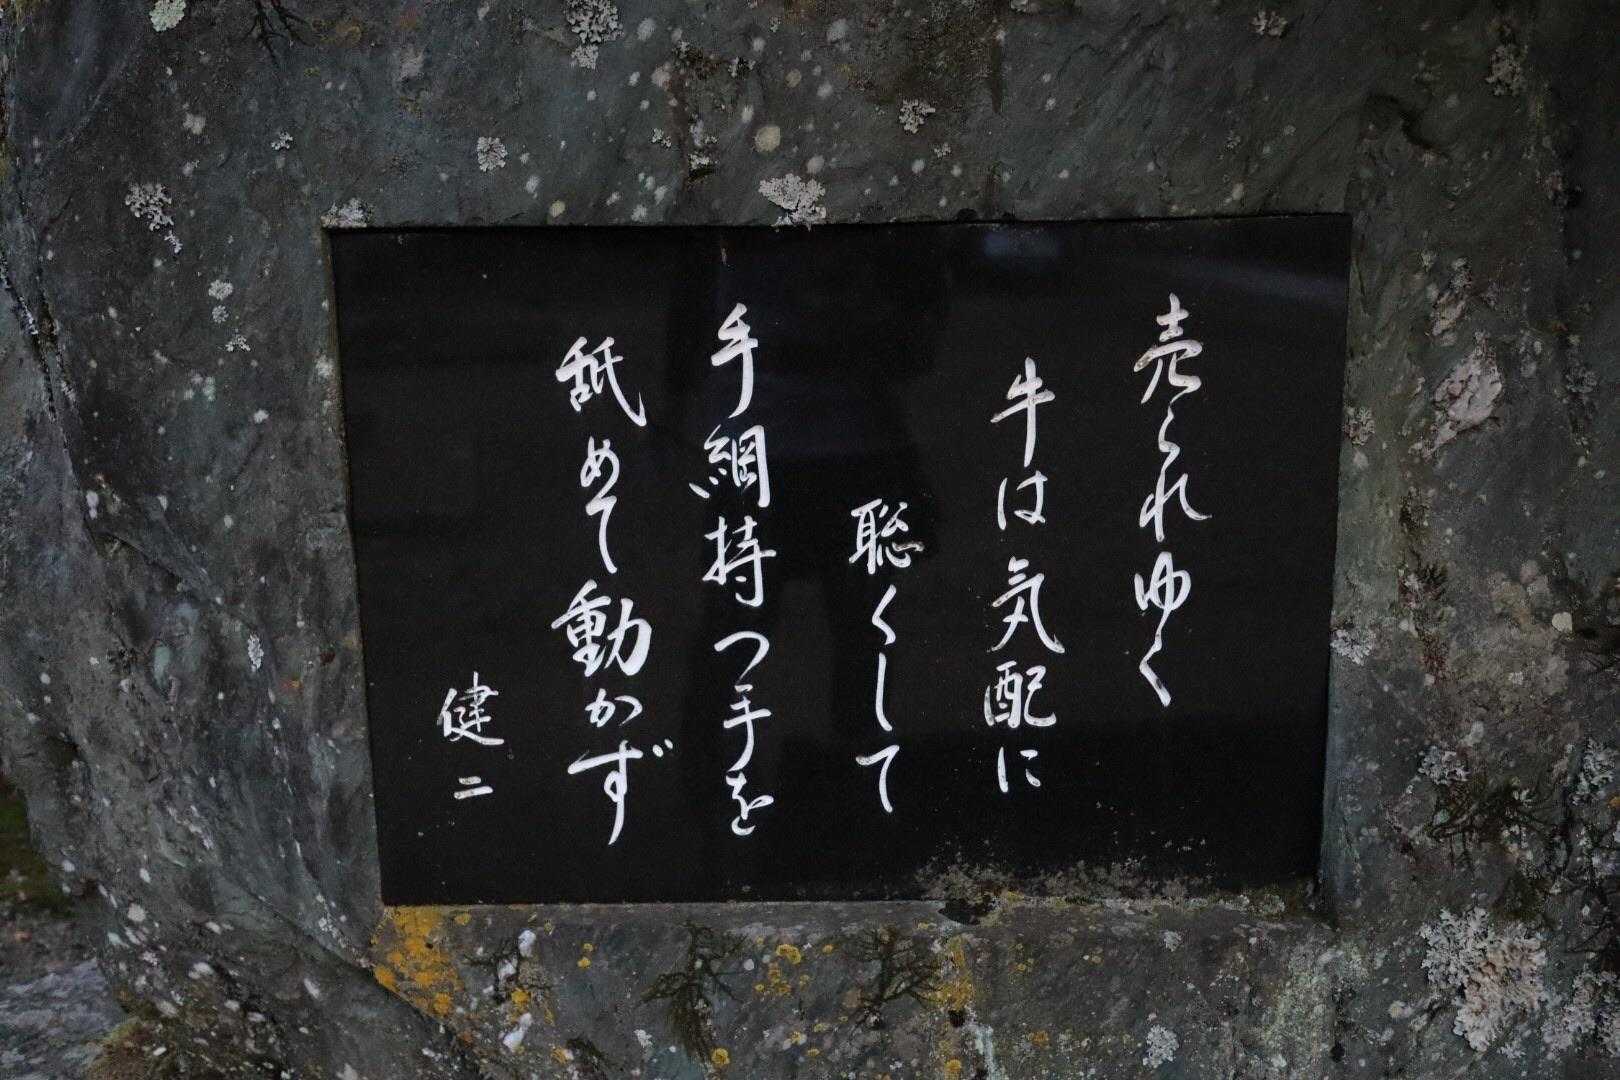 売られゆく
牛は気配に
聡くして
手綱持つ手を
舐めて動かず
健二